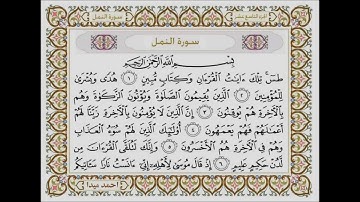 سورة النمل
الجزء التاسع عشر
سورة النمل
بِسْمِ ٱللَّهِ ٱلرَّحْمَٰنِ ٱلرَّحِيمِ
طسٓ تِلْكَ ءَايَٰتُ ٱلْقُرْءَانِ وَكِتَابٍ مُّبِينٍ ١ هُدًى وَبُشْرَىٰ
لِلْمُؤْمِنِينَ ٢ ٱلَّذِينَ يُقِيمُونَ ٱلصَّلَوٰةَ وَيُؤْتُونَ ٱلزَّكَوٰةَ وَهُم
بِٱلْءَاخِرَةِ هُمْ يُوقِنُونَ ٣ إِنَّ ٱلَّذِينَ لَا يُؤْمِنُونَ بِٱلْءَاخِرَةِ زَيَّنَّا لَهُمْ
أَعْمَٰلَهُمْ فَهُمْ يَعْمَهُونَ ٤ أُو۟لَٰٓئِكَ ٱلَّذِينَ لَهُمْ سُوٓءُ ٱلْعَذَابِ
وَهُمْ فِى ٱلْءَاخِرَةِ هُمُ ٱلْأَخْسَرُونَ ٥ وَإِنَّكَ لَتُلَقَّى ٱلْقُرْءَانَ مِن
لَّدُنْ حَكِيمٍ عَلِيمٍ ٦ إِذْ قَالَ مُوسَىٰ لِأَهْلِهِۦٓ إِنِّىٓ ءَانَسْتُ نَارًا سَـَٔاتِيكُم
احمد ميدا